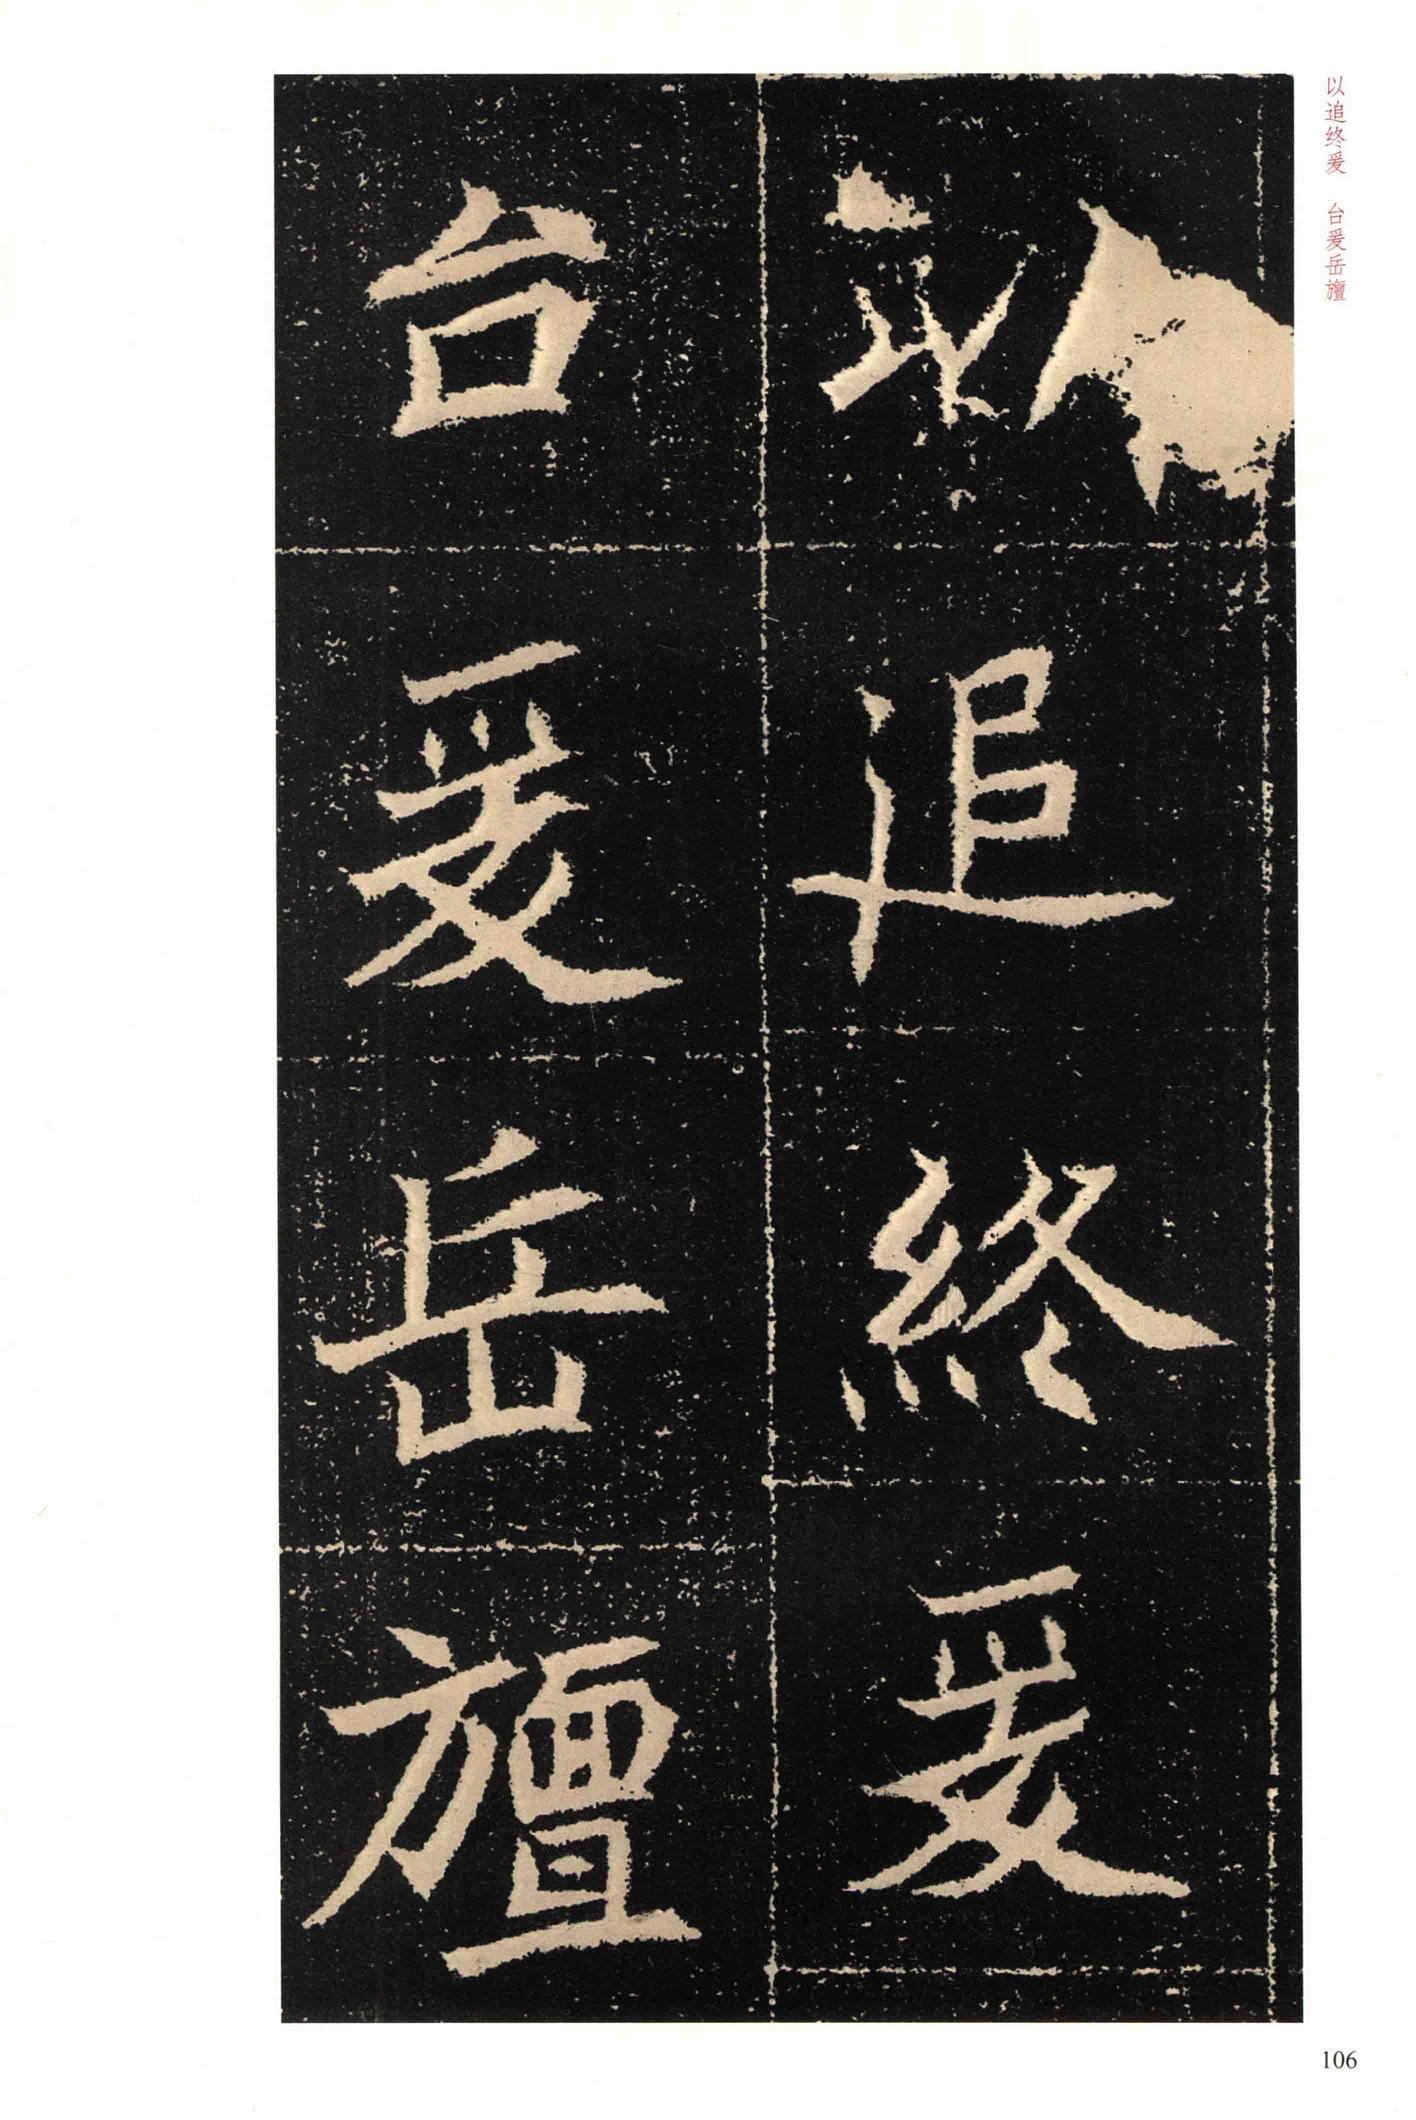 以追終爰
台爰岳旜
以追终爰　台爰岳旜
106